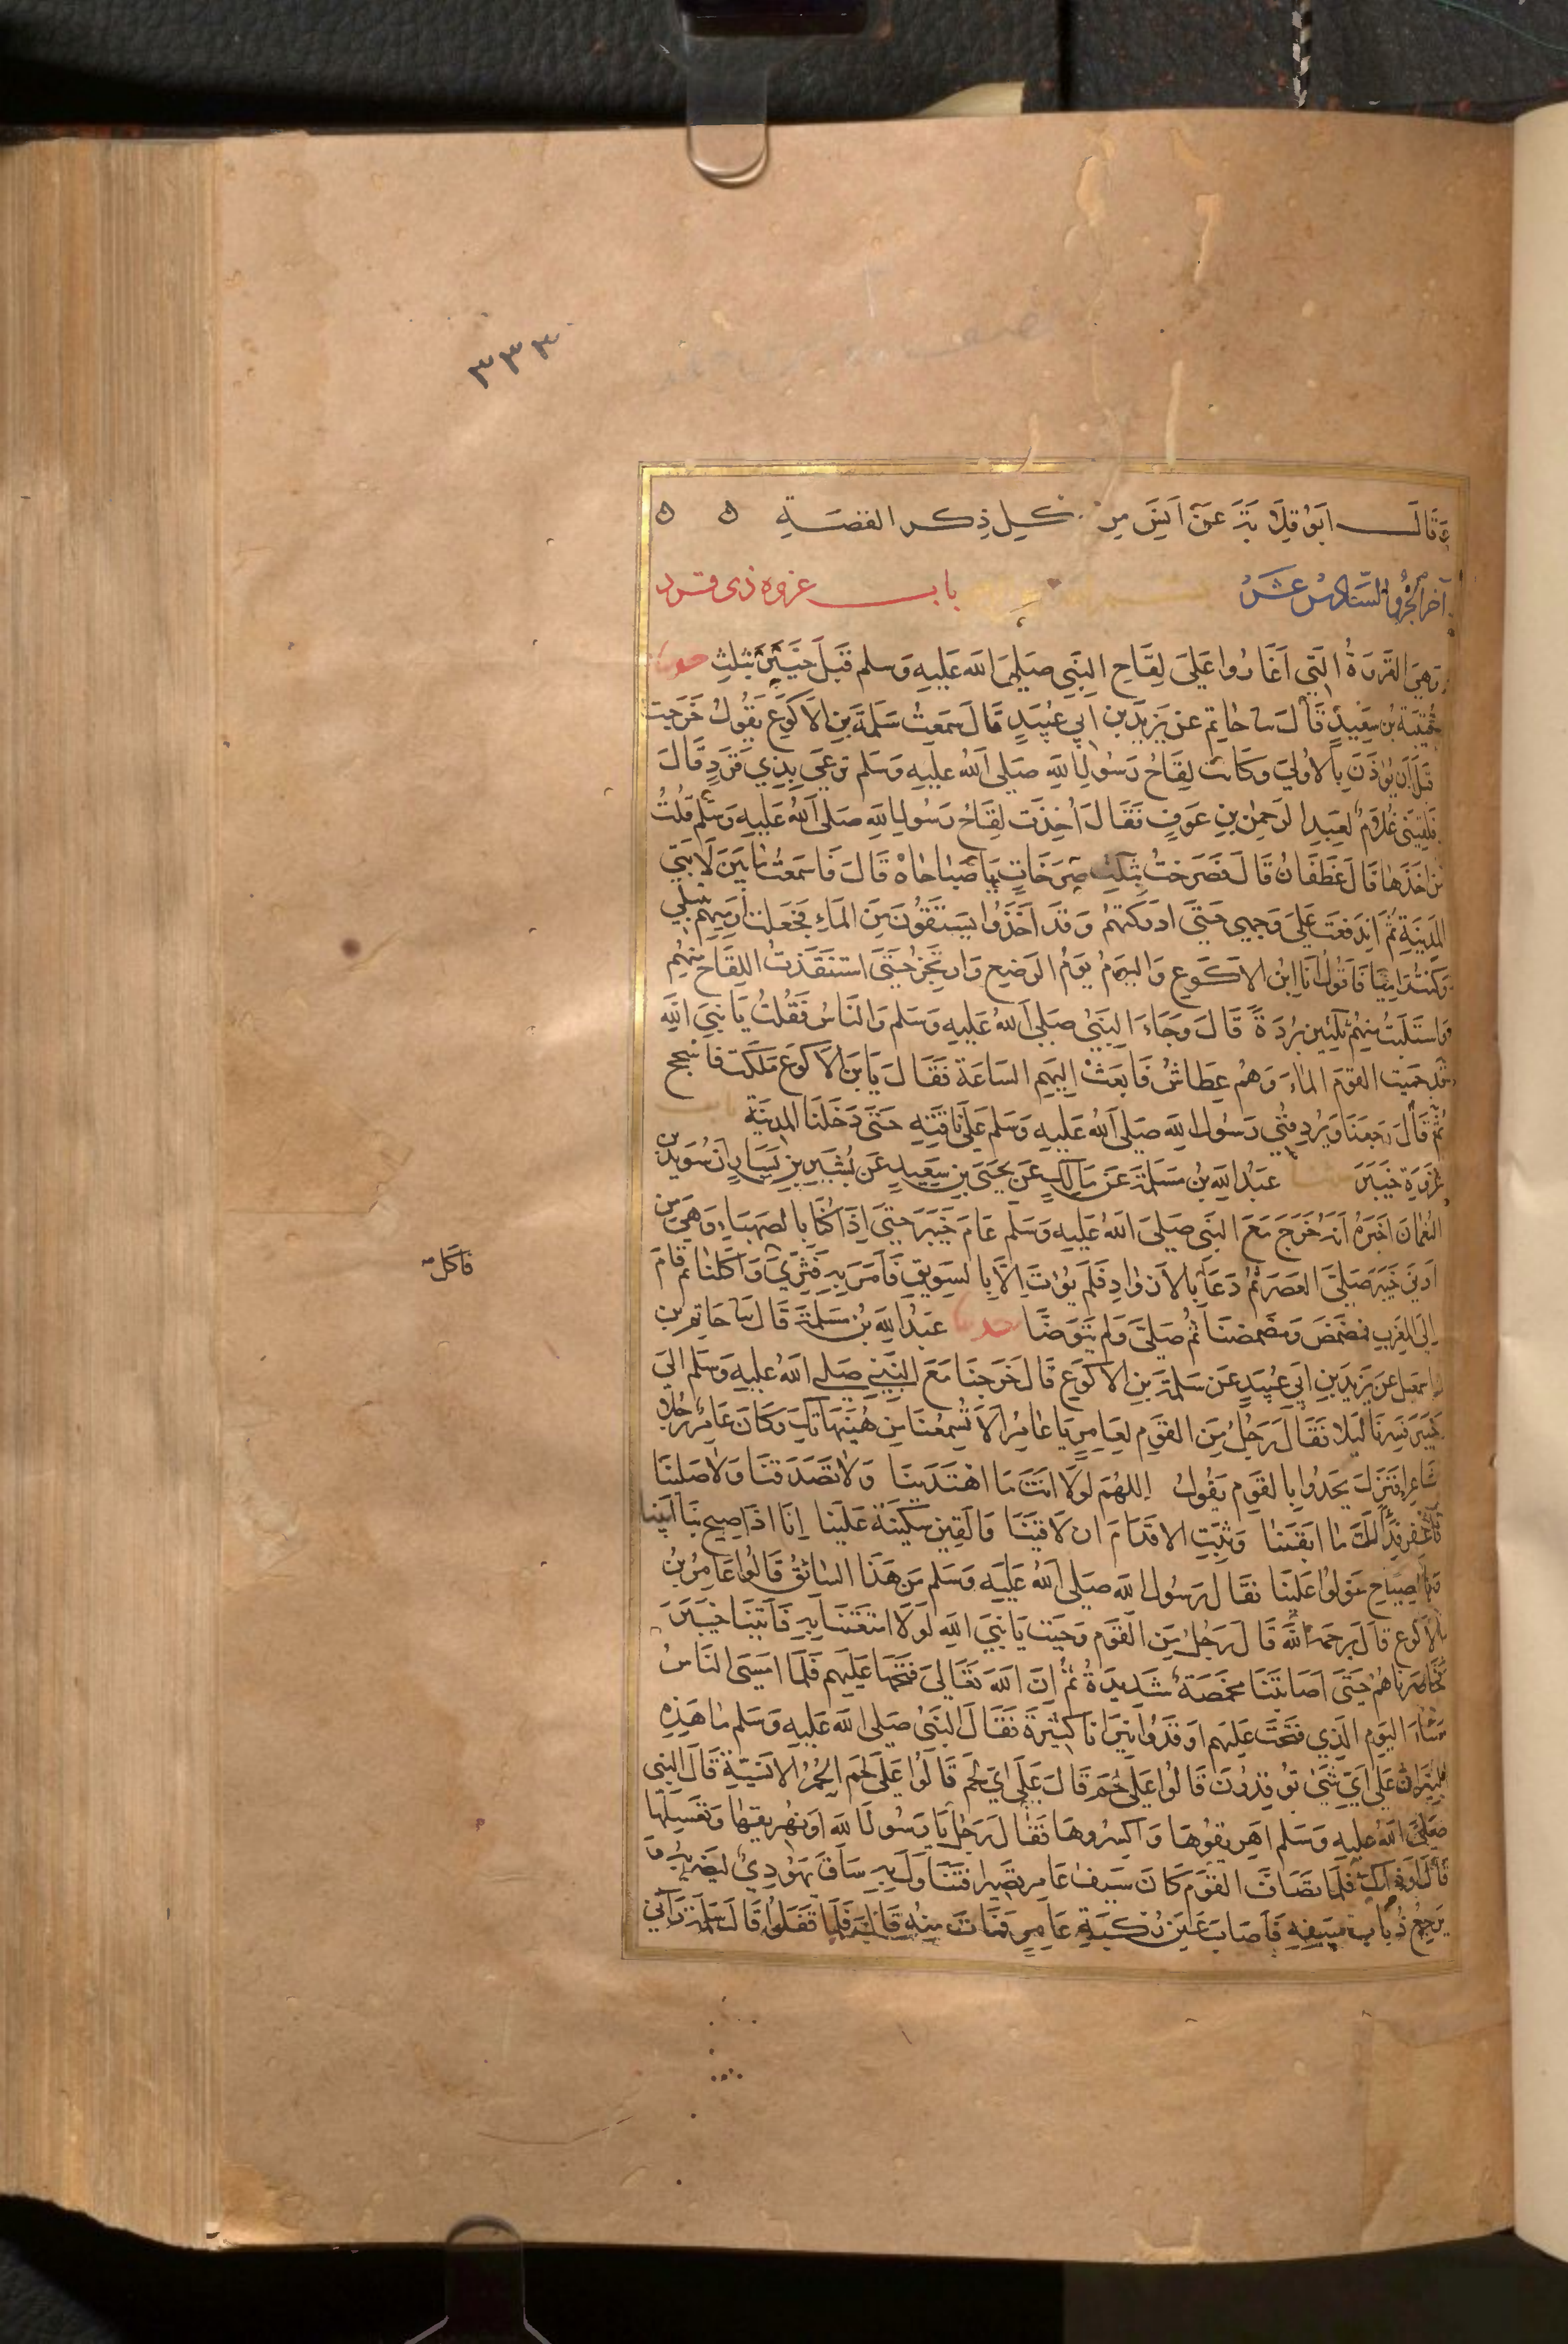 ٣٣٣
وَقَالَ ابَوُ قِلَابَةَ عَنْ اَنَسٍ مِنْ عُكْلٍ ذِكر القصَةِ ه ه
آخر الجُزُو السَّادِسُ عَشَرُ
باب غزوه ذى قرد
وَهِيَ الغَزوَةُ الَتِي اَغَارُوا عَلَى لِقَاحِ النَبِي صَلَى اللَه عَلَيهِ وَسلم قَبلَ خَيبَرَ بثلثٍ حدثنا
قُتَيبَة بن سَعِيدٍ قَالَ سا حاتِم عن يَزيدَ بن ابي عُبَيدٍ قالَ سَمعتُ سَلَمَةَ بنِ الاَكوَعِ يَقُولُ خَرجتُ
قَبلَ اَن يُؤذَنَ بِالاولىَ وَكَانت لِقَاحُ رَسُولِ اللهِ صَلى اللهُ عليهِ وَسَلم تَرعَى بِذِي قَرَدٍ قَالَ
فلقِيَنى غلامٌ لعَبدِ الرَحمٰن بنِ عَوفٍ فَقَالَ اُخِذَت لقَاحُ رَسُولِ اللهِ صَلى اللهُ عَليهِ وَسَلم قُلتُ
مَن اخَذَها قالَ غَطَفَانُ قَالَ فصَرختُ بثَلثِ صَرَخَاتٍ يَا صَبَاحَاهْ قَالَ فَاسمَعتُ مَا بَينَ لَابتَي
المَدِينَةِ ثُمَ اندَفَعتُ عَلَى وَجهِي حَتىَ ادرَكتهُم وَقَد اَخَذُوا يَستَقُونَ مِنَ المَاءِ فَجَعَلت اَرمِيهِم بنَبلي
وَكنتُ رَاميًا فَاقُولُ انَا ابنُ الاكَوعِ وَاليومُ يَومُ الرضعِ وَارتجِز حَتىَ استنَقذتُ اللِقَاحَ مِنهُم
وَاستَلَبتُ مِنهُم ثلثِينَ بُردَةً قَالَ وَجَاءَ النَبيُ صَلى اللهُ عَليهِ وَسَلم وَالنَاسُ فَقُلتُ يَا نبِيَ اللَه
قَد حميت القَومَ المَاءَ وَهُم عِطَاشُ فَابعَثْ اِليهِم السَاعَة فقَالَ يَابنَ الاَكوَع مَلَكتَ فاسجح
ثُمَ قَالَ رَجَعنَا وَيُردِفُني رَسُولُ اللهِ صَلى اللهُ عَليهِ وَسَلم عَلىَ نَاقَتِهِ حَتىَ دَخَلنَا المَدِينَةَ باب
غزوَةِ خَيبَرَ حدثنا عَبدُ اللهِ بنُ مَسَلَمَةَ عَن مَالِكٍ عَن يحَيىَ بنِ سَعِيدٍ عَن بُشَيرِ بنِ يَسَارٍ اَنَ سُوَيدَ بن
النُعمَانَ اخبَرَهُ اَنهُ خَرَجَ مَعَ النَبي صَلىَ اللهُ عَليهِ وَسَلم عَامَ خَيبَرَ حَتىَ اِذَا كنَا بالصَهبَاءِ وَهِيَ مِن
ادنى خَيبَرَ صَلىَ العَصرَ ثُمَ دَعَا بالازوَادِ فَلَم يُؤتَ اِلاَ بالسَوِيقِ فَامَرَ بِهِ فَثُرِّيَ وَاَكَلنَا ثُم قَامَ
فاكل صه
اِلى المَغربِ فمَضمَضَ وَمَضمضنَا ثُمَ صَلىَ وَلم يَتَوَضَا حدثنا عَبدُ اللهِ بنُ مَسلَمَةَ قَالَ سا حَاتِم بن
اِسمَعيل عَن يَزيدَ بنِ ابي عُبيدٍ عَن سَلمَةَ بنِ الاكوَعِ قَالَ خَرَجنَا مَعَ النَبي صَلى اللهُ عليهِ وَسَلم الىَ
خَيبَرَ فسِرنَا لَيلا فقَالَ رَجُلٌ مِنَ القَومِ لعَامِرٍ يَا عَامِرُ اَلا تُسمِعُنَا مِن هُنَيهَاتِكَ وَكَانَ عَامِرٌ رَجُلا
شَاعِرا فنَزَلَ يَحدُوا بالقَومِ يَقُولُ اللهُمَ لَولَا انتَ مَا اهتَدَينَا وَلا تَصَدَقنَا وَلا صَلينَا
فَاغفِر فِدًا لكَ مَا ابقَينَا وَثبتِ الاقدَامَ ان لاقَينَا وَالقِيَن سَكِينَة عَلَينَا اِنَا اذَا صِيحَ بنَا اَبَينَا
وَبالصِيَاحِ عَولُوا عَلَينَا فقَالَ رَسُولُ اللهِ صَلى اللهُ عَليهِ وَسَلم مَن هَذَا السَائقُ قَالُوا عَامِرُ بنُ
الاكوَعِ قَالَ يَرحَمهُ اللَه قَالَ رَجُلٌ مِنَ القَومِ وَجَبَت يَا نبِيَ اللهِ لَولَا امتَعتَنَا بِهِ فَاتَينَا خَيبَرَ
فَحَاصَرنَاهُم حَتىَ اَصَابتَنَا مَخمَصَةٌ شَدِيدَةٌ ثُمَ اِنَ اللهَ تعَالىَ فَتَحَهَا عَلَيهِم فَلَمَا امَسَى النَاسُ
مَسَاءَ اليَومِ الذِي فُتحَتَ عَليهم اوقَدُوا نِيرَانَا كثيرَةً فقَالَ النَبيُ صَلى اللهُ عَليهِ وَسَلم مَا هَذِهِ
النِيرَانُ عَلى اَيِ شَيٍ تُوقِدُونَ قَالُوا عَلى لحَم قَالَ عَلَى اَيِ لحَم قَالُوا عَلَى لحَمِ الحُمُرِ الانسِيَةِ قَالَ النَبى
صَلىَ اللهُ عليهِ وَسَلم اهَرِيقُوهَا وَاكسِرُوهَا فقَالَ رَجُلٌ يَا رَسُولَ اللهِ اَو نُهَرِيقهَا وَنغسِلهَا
قَالَ اَو ذَاكَ فَلَمَا تَصَافَ القَومَ كَانَ سَيفُ عَامِر قصِيرا فتَنَاوَلَ بِهِ سَاقَ يَهُودِيٍ ليَضربَهُ وَ
يَرجِعُ ذُبَابُ سَيفِهِ فَاَصَابَ عَينَ رُكبَةِ عَامِرٍ فَمَاتَ مِنهُ قَالَ فَلمَا قَفَلُوا قَالَ سَلَمَة رَآنِي